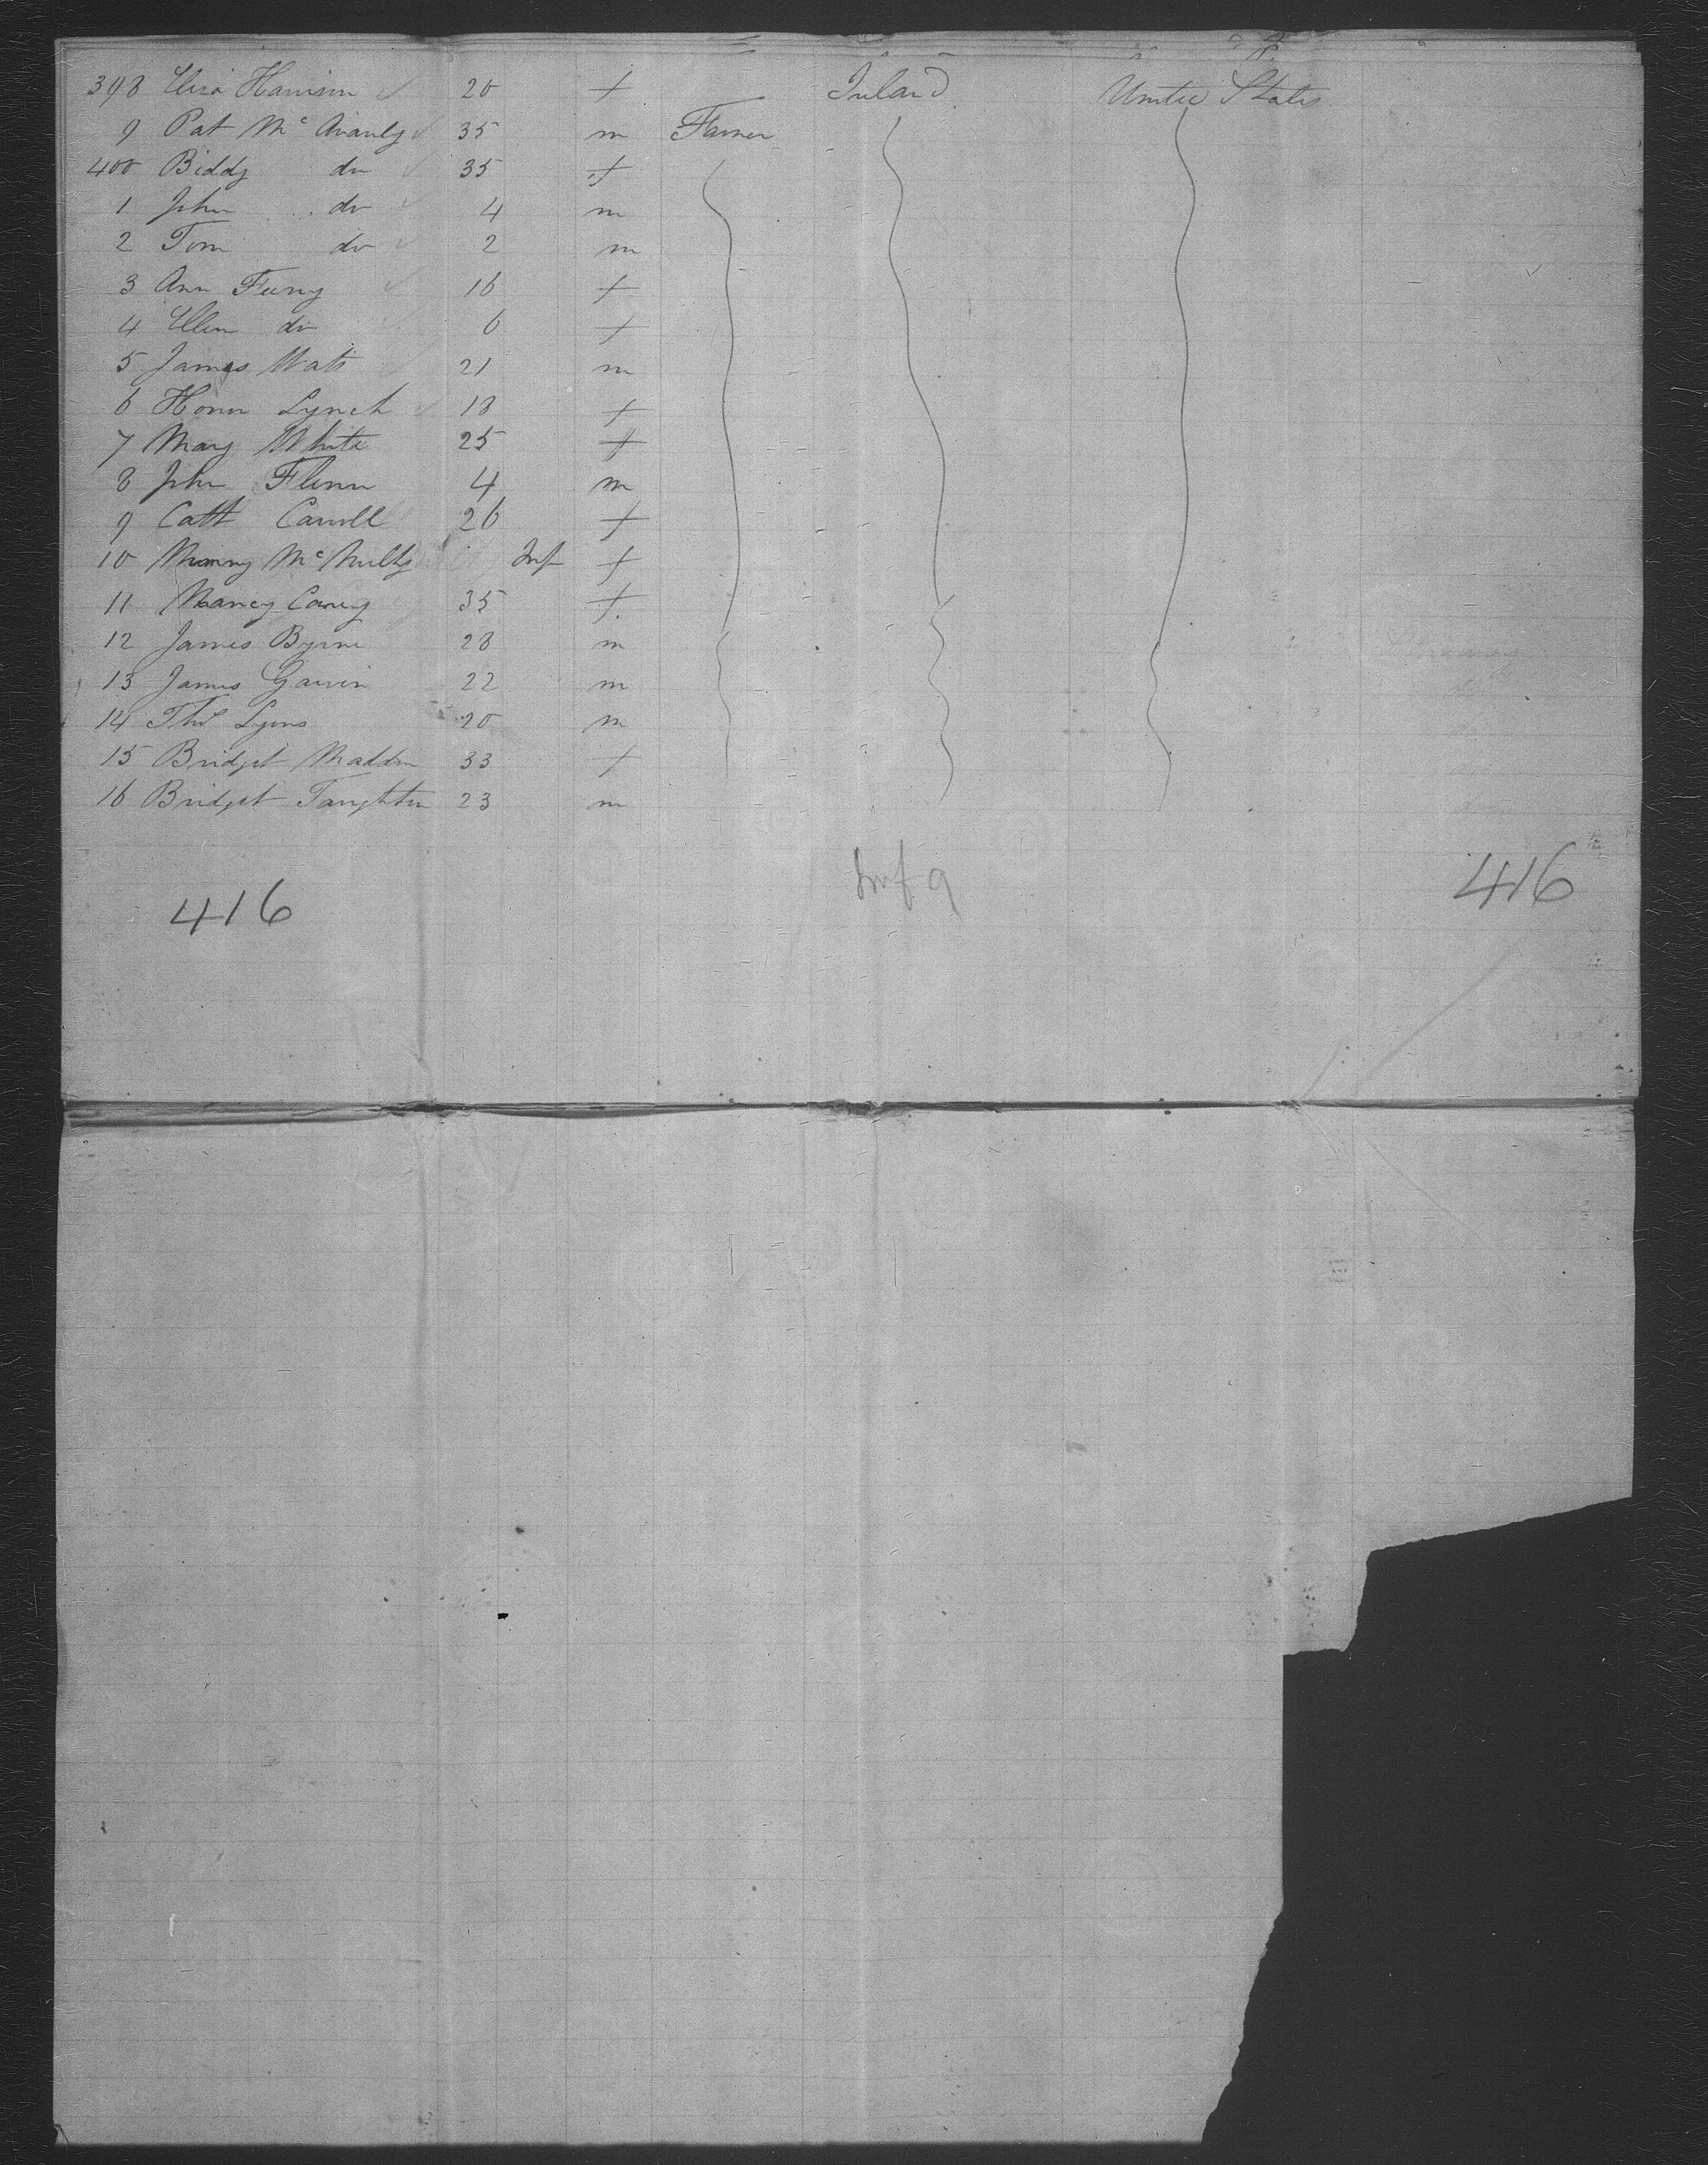 398 Eliza Harrison ✓ 20 f Ireland United States
9 Pat McAnanly ✓ 35 m Farmer
400 Biddy do ✓ 35 f
1 John do ✓ 4 m
2 Tom do ✓ 2 m
3 Ann Feeny ✓ 16 f
4 Ellen do 6 f
5 James Watt 21 m
6 Honor Lynch ✓ 18 f
7 Mary White 25 f
8 John Flinn 4 m
9 Cath Carroll 26 f
10 McNulty Inf f
11 Nancy Carey 35 f
12 James Byrne 28 m
13 James Gavin 22 m
14 Thos Lyons 20 m
15 Bridget Madden 33 f
16 Bridget Taughton 23 m
416 Inf 9 416